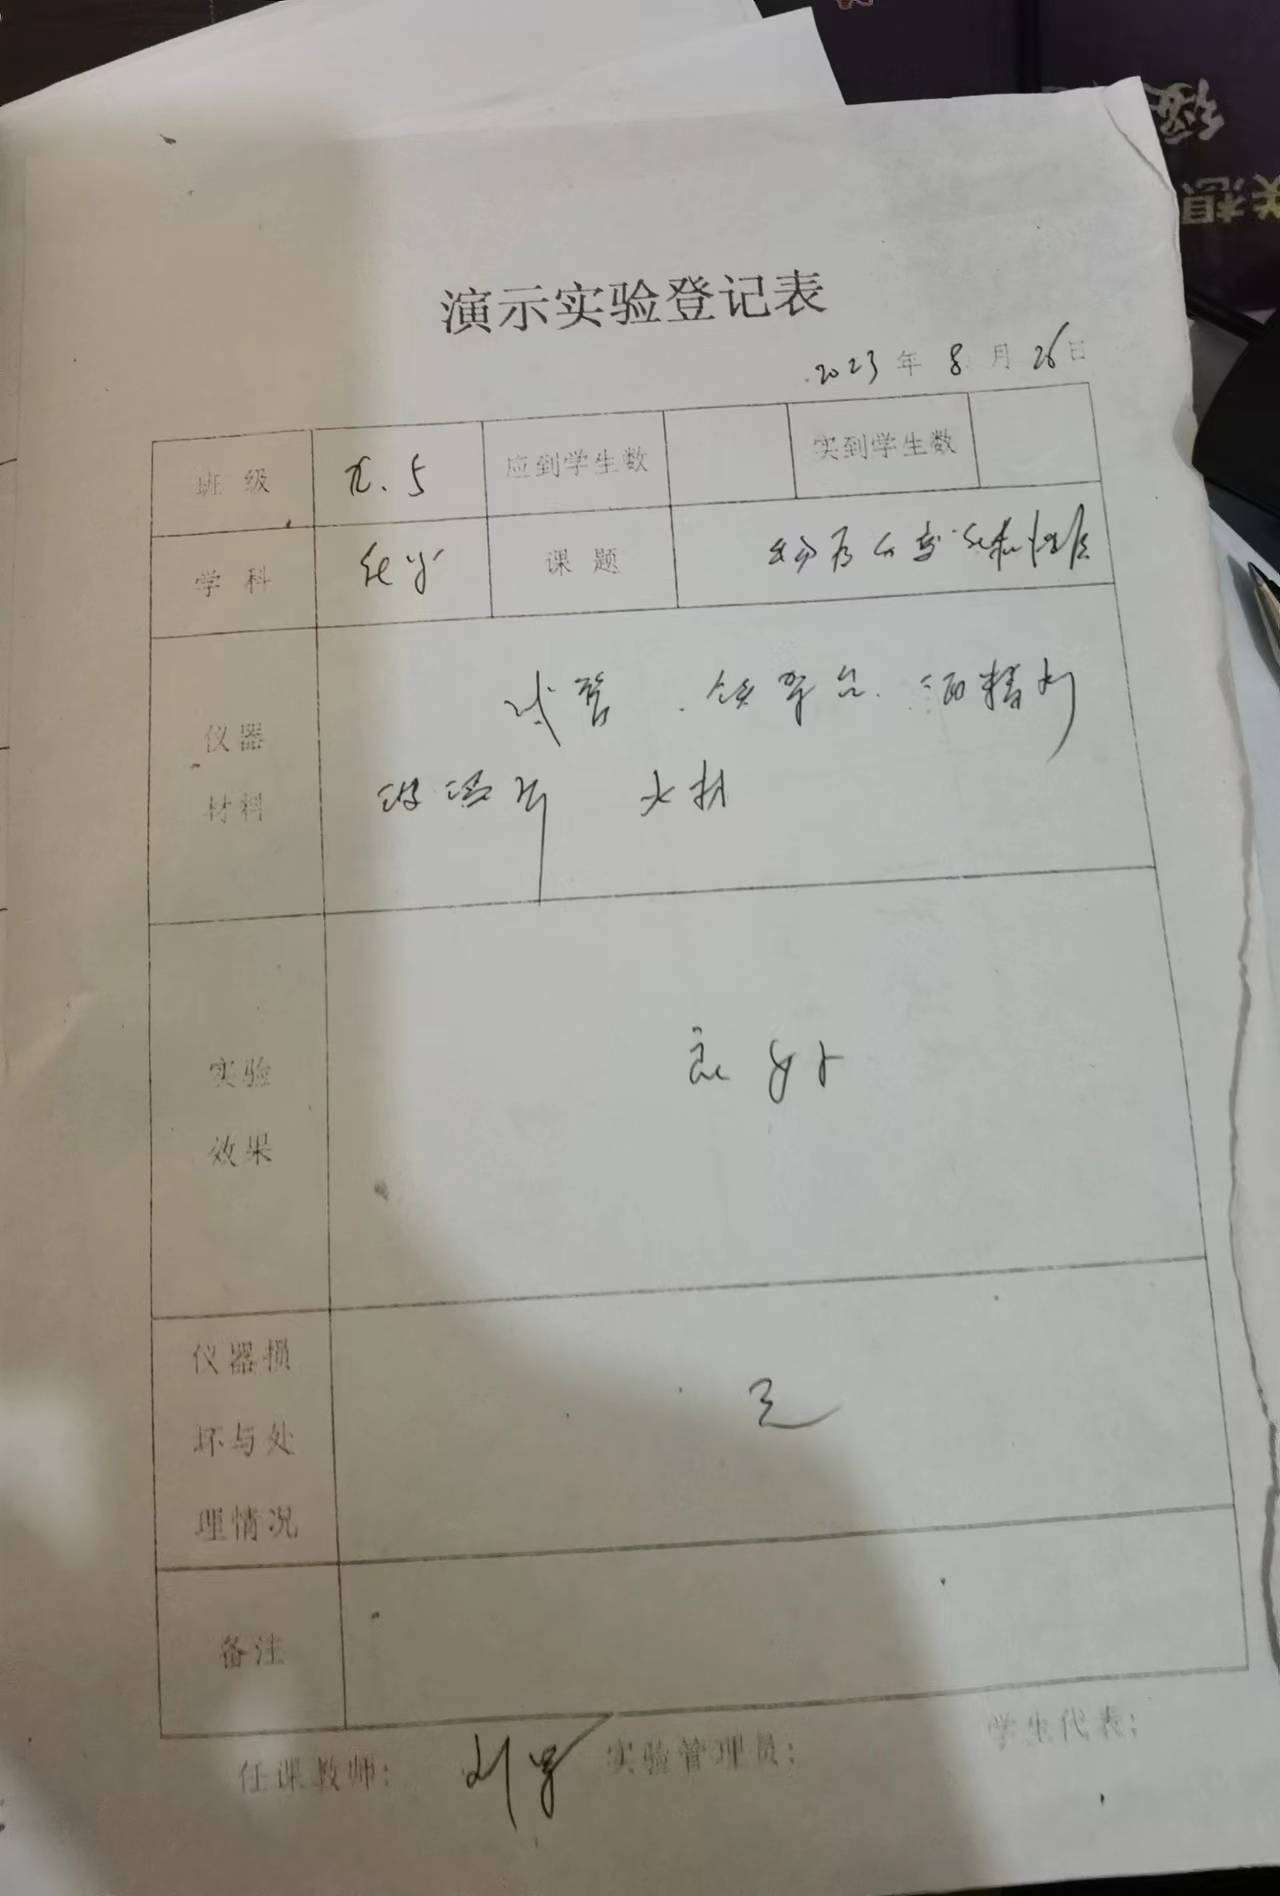 演示实验登记表
2023年8月26日
班级 九.5 应到学生数 实到学生数
学科 化学 课题 物质的变化和性质
仪器材料 试管.铁架台.酒精灯
玻璃片 火柴
实验效果 良好
仪器损坏与处理情况 无
备注
任课教师: 刘 实验管理员: 学生代表:
想